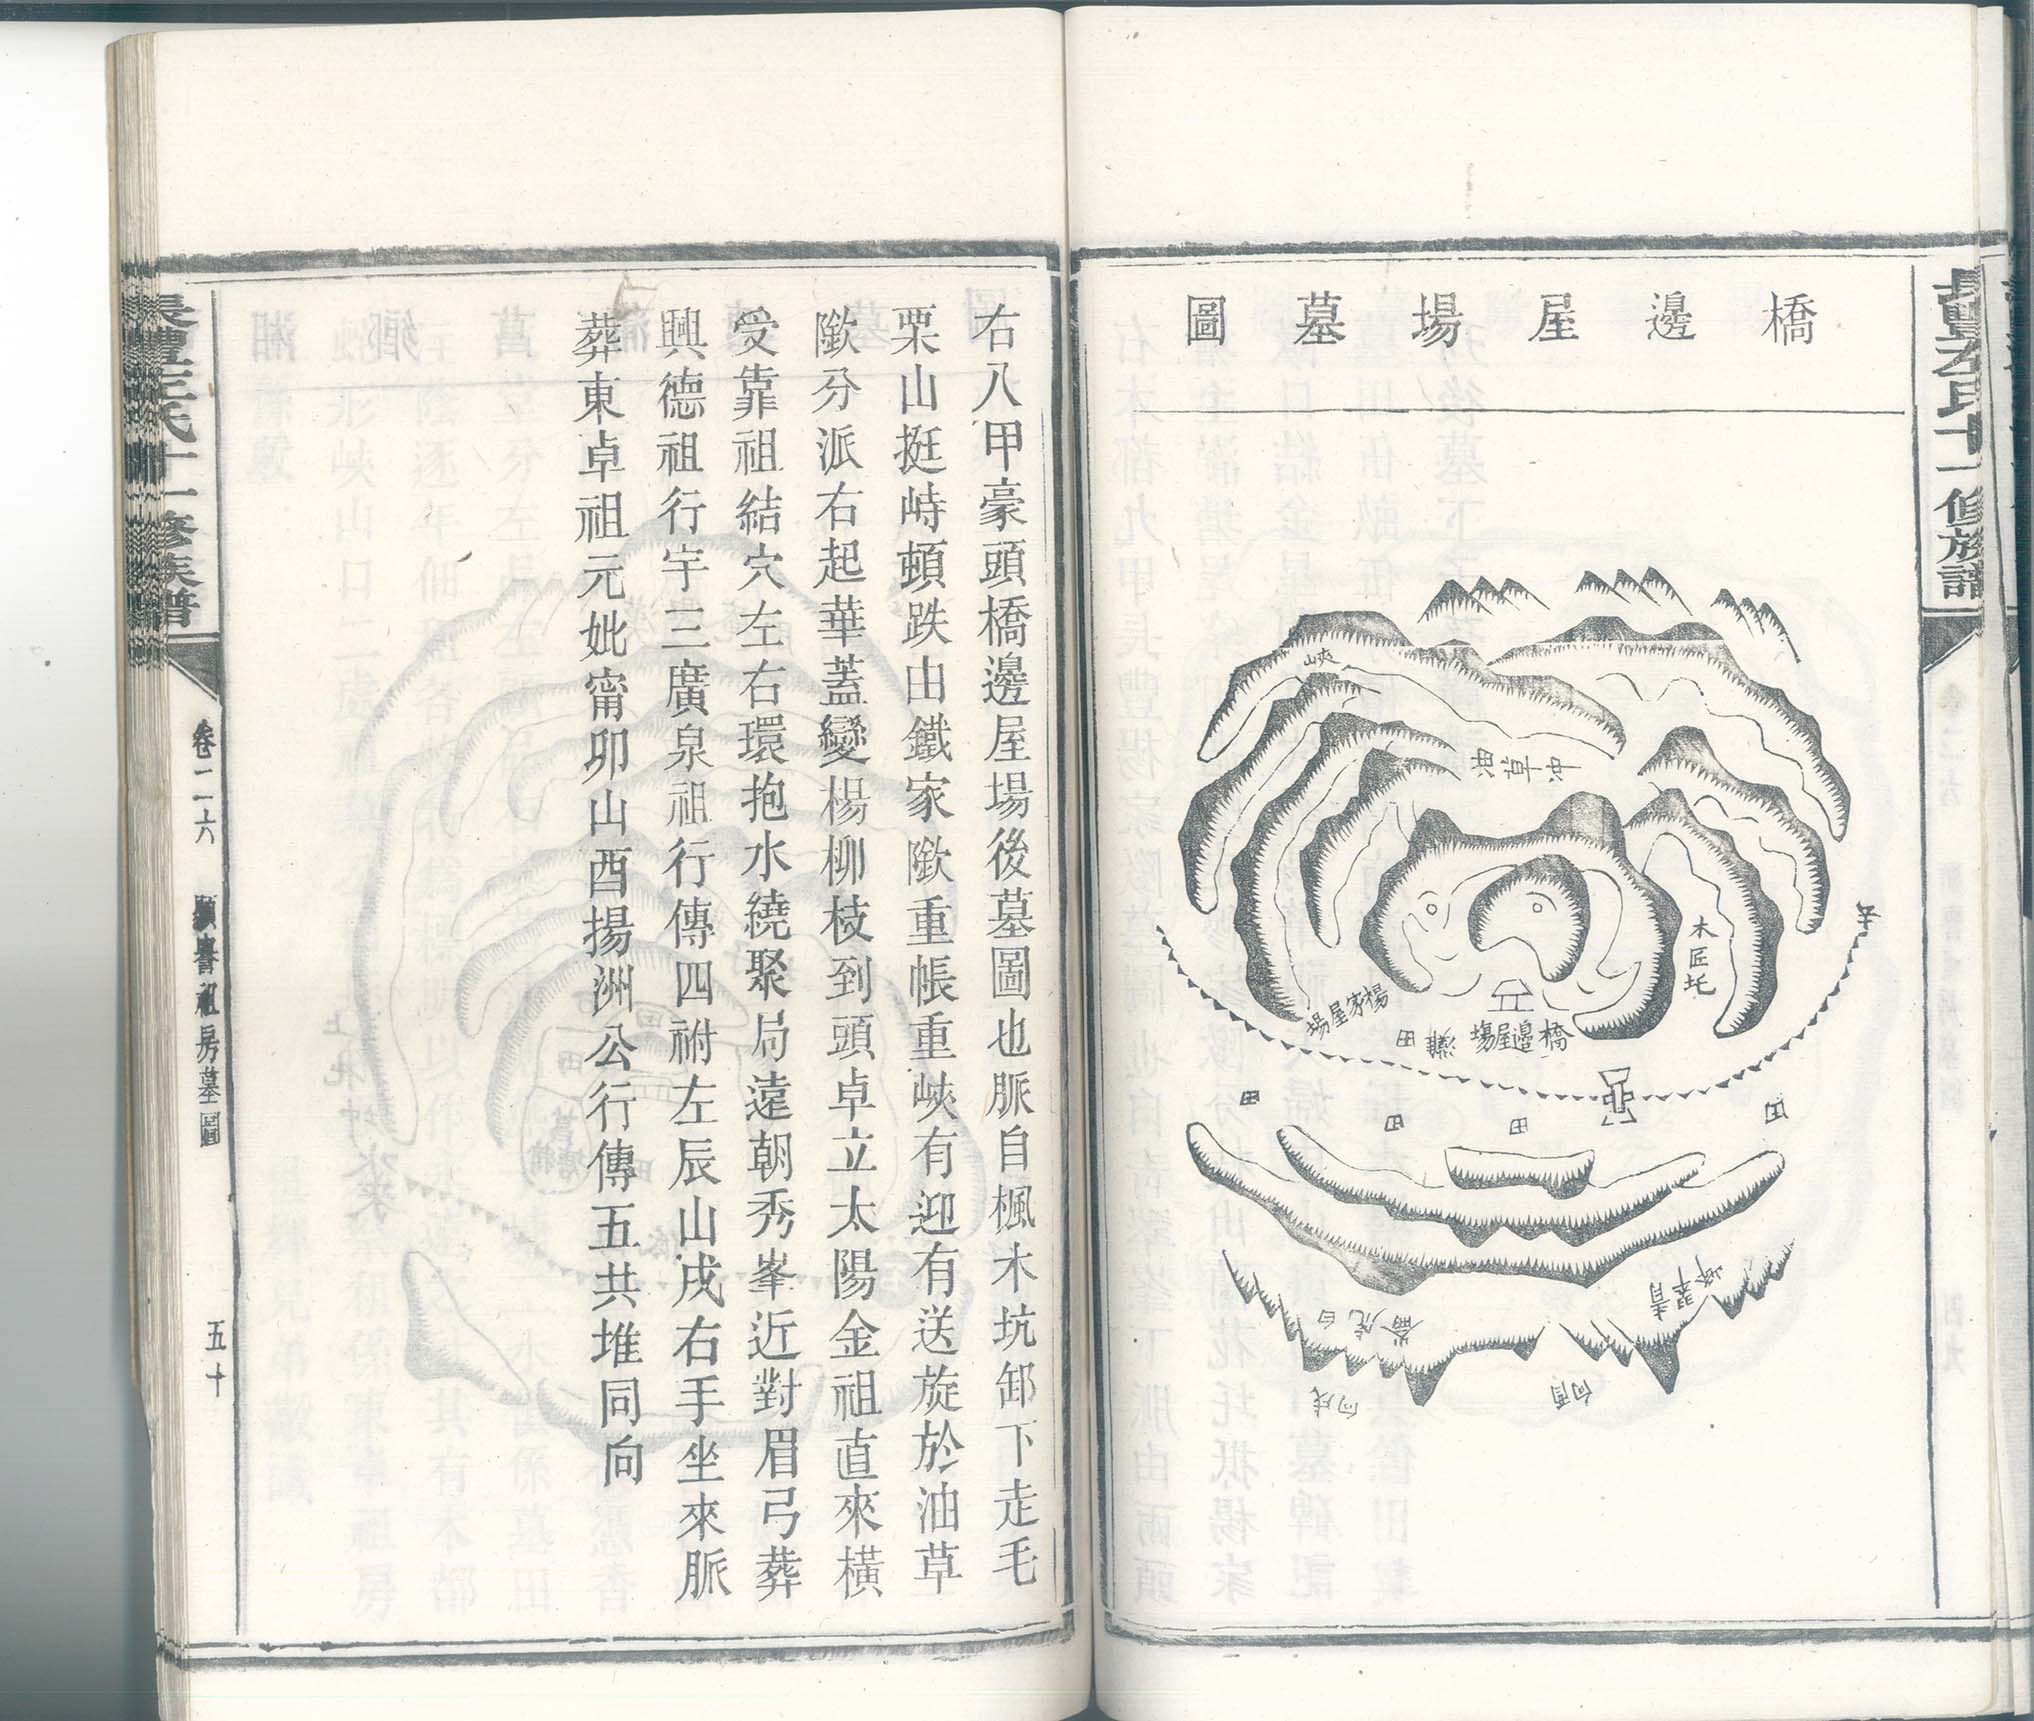 橋邊屋場墓圖
峽
油草冲
木匠圫
楊家屋場
橋邊屋場
田
田
田
田
田
白虎崙
青翠峯
向戌
向酉
右八甲豪頭橋邊屋場後墓圖也脈自楓木坑卸下走毛
栗山挺峙頓跌由鐵家㘓重帳重峽有迎有送旋於油草
㘓分派右起華蓋變楊柳枝到頭卓立太陽金祖直來橫
受靠祖結穴左右環抱水繞聚局遠朝秀峯近對眉弓葬
興德祖行宇三廣泉祖行傳四祔左辰山戌右手坐來脈
葬東卓祖元妣甯卯山酉揚洲公行傳五共堆同向
十一修族譜
卷二六
顯書祖房墓圖
五十